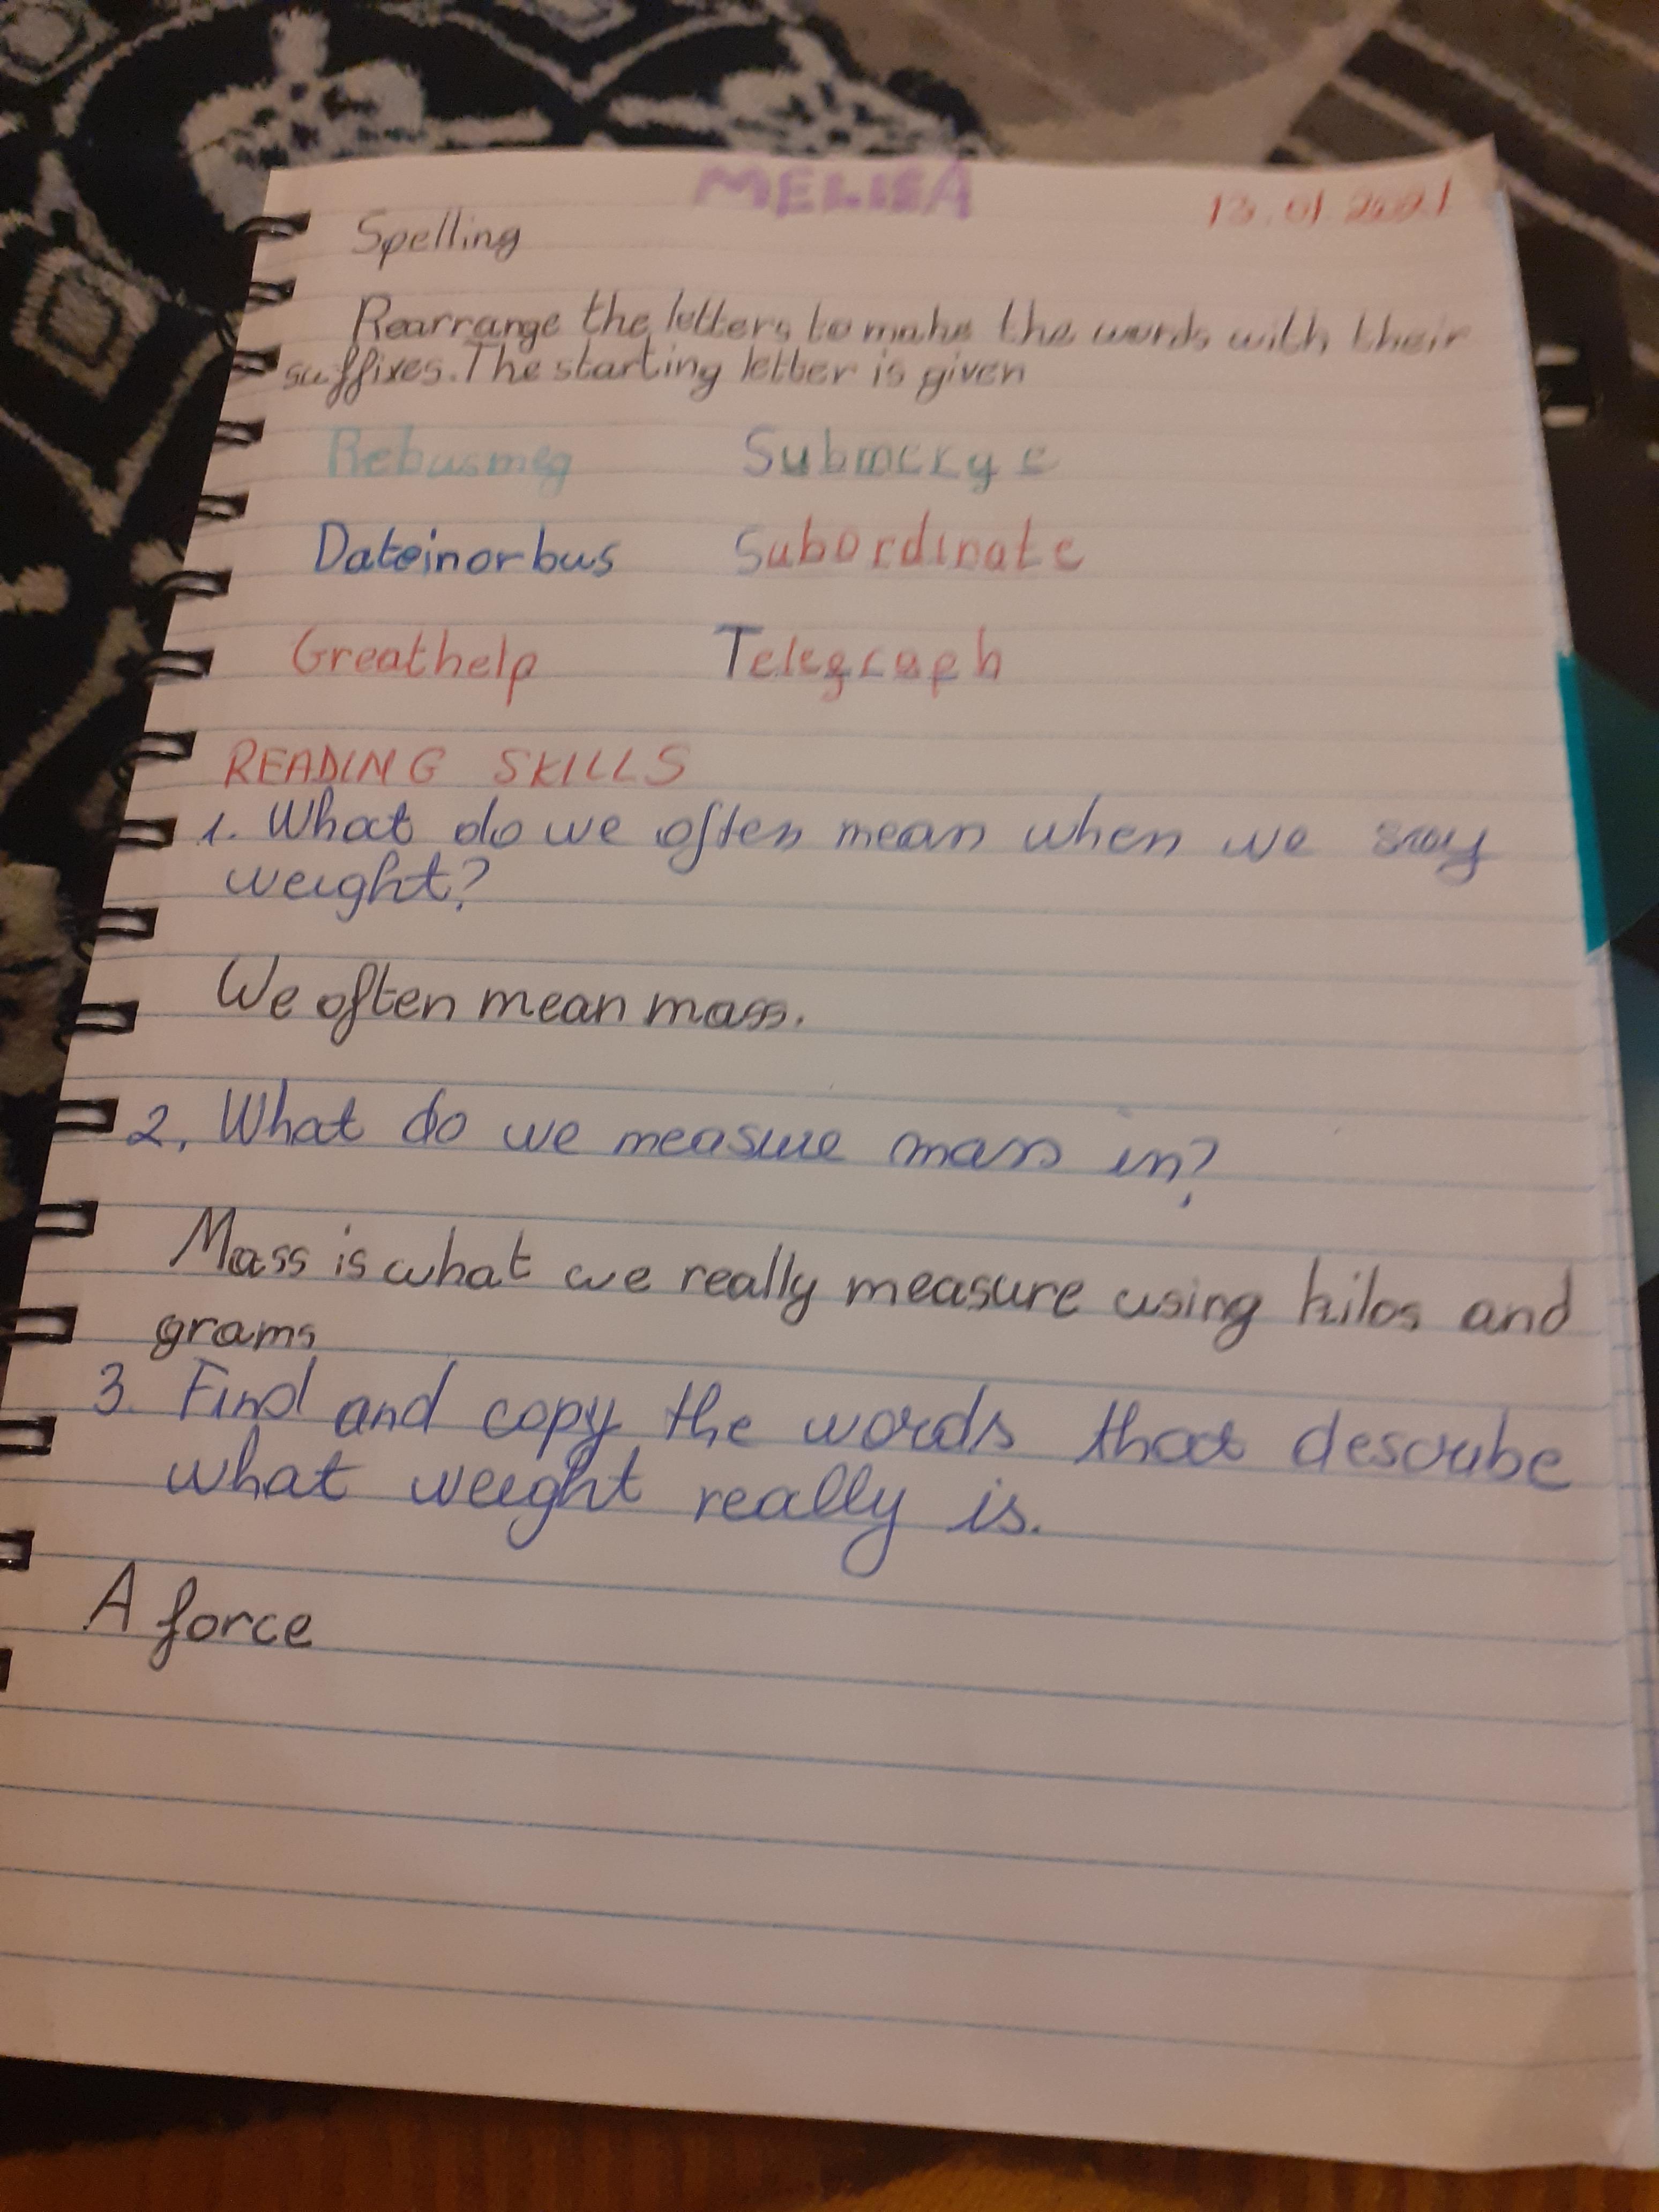 MELISA
13.01.2021
Spelling
Rearrange the letters to make the words with their
suffixes. The starting letter is given
Rebusmeg Submerge
Dateinorbus Subordinate
Greathelp Telegraph
READING SKILLS
1. What do we often mean when we say
weight?
We often mean mass.
2. What do we measure mass in?
Mass is what we really measure using kilos and
grams
3. Find and copy the words that describe
what weight really is.
A force